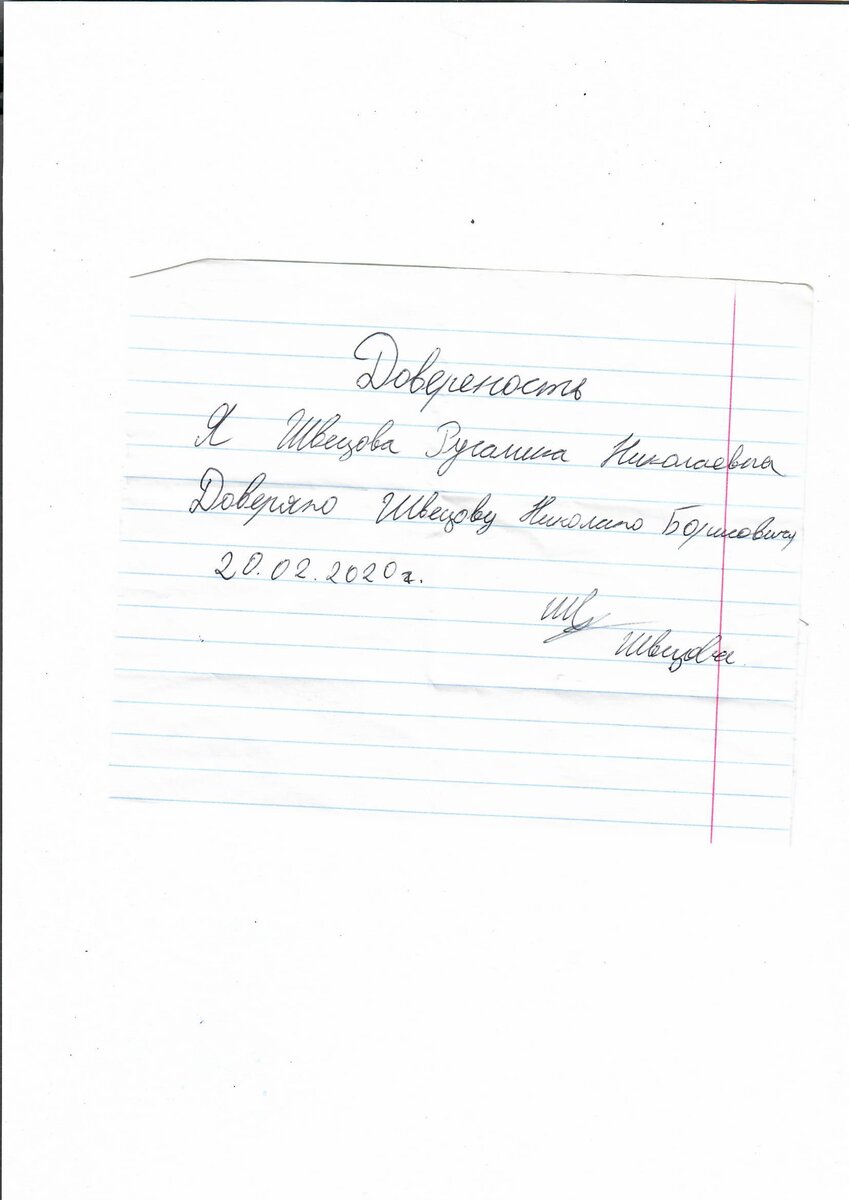 Довереность
Я Швецова Русалина Николаевна
Доверяю Швецову Николаю Борисовичу
20.02.2020г.
Швецова